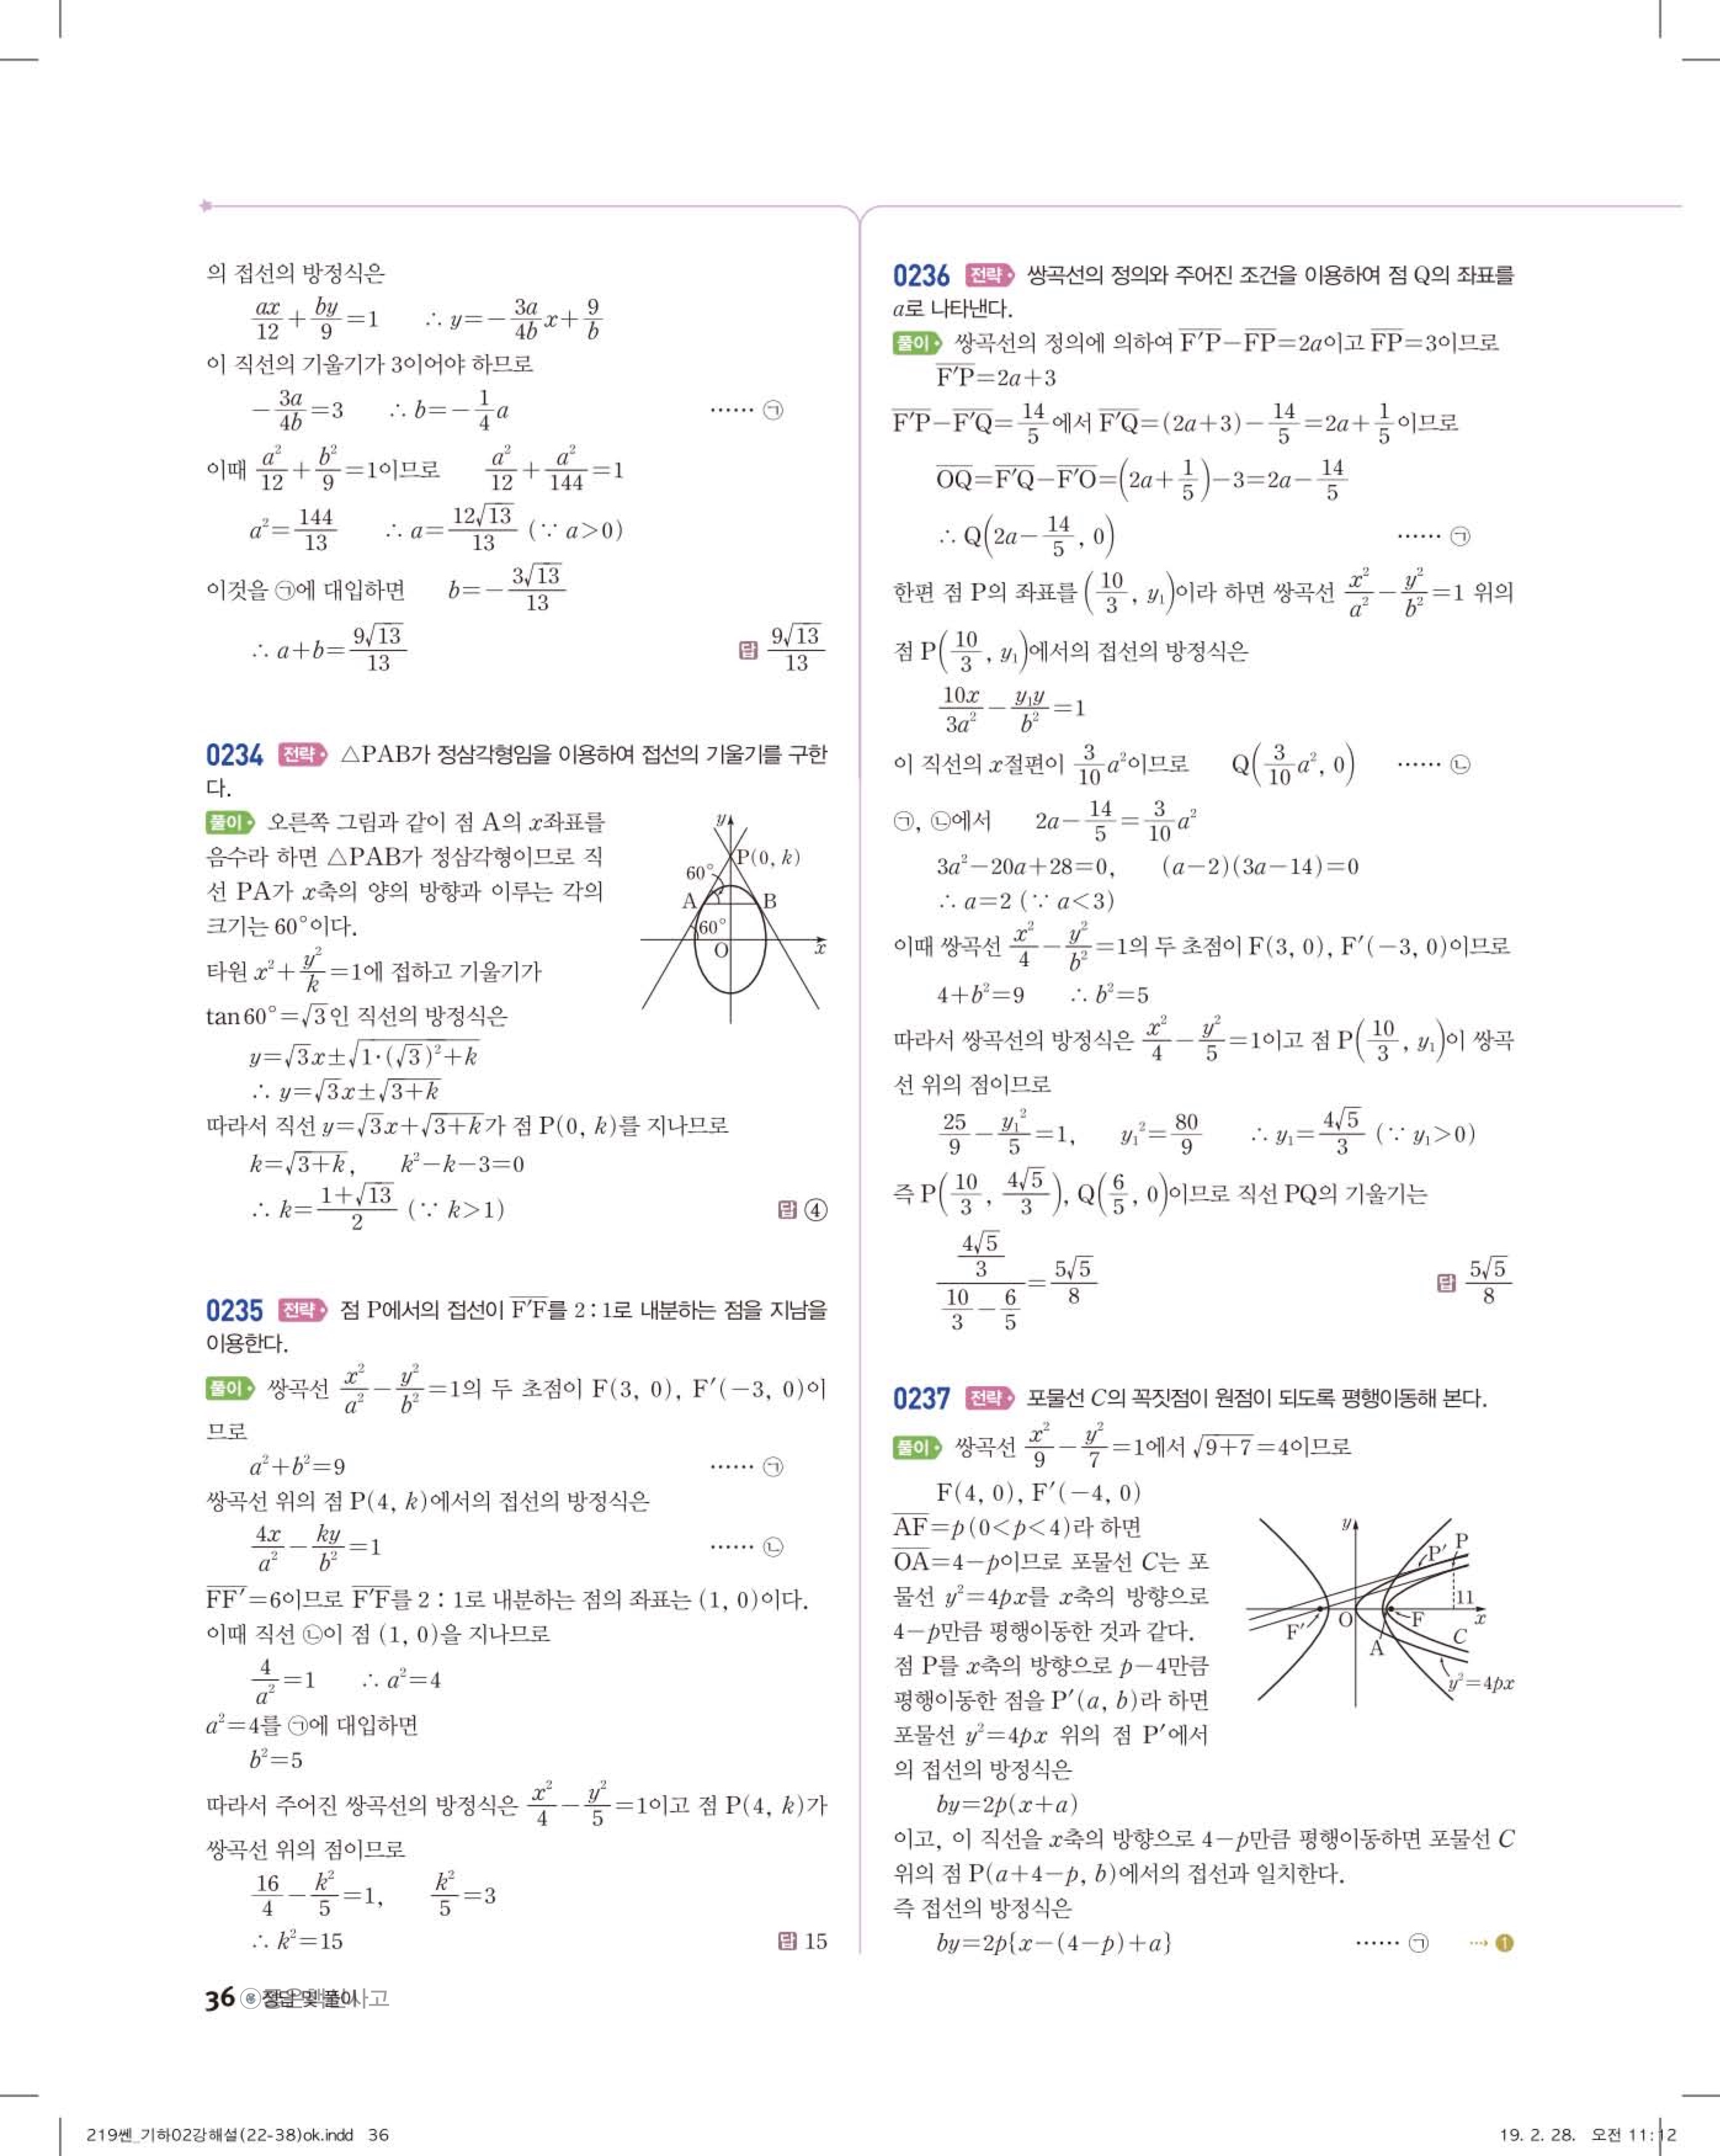 의 접선의 방정식은
ax/12 + by/9 = 1 ∴ y = -3a/4b x + 9/b
이 직선의 기울기가 3이어야 하므로
-3a/4b = 3 ∴ b = -1/4 a ······ ㉠
이때 a²/12 + b²/9 = 1이므로 a²/12 + a²/144 = 1
a² = 144/13 ∴ a = 12√13/13 (∵ a>0)
이것을 ㉠에 대입하면 b = -3√13/13
∴ a+b = 9√13/13 답 9√13/13
0234 전략 △PAB가 정삼각형임을 이용하여 접선의 기울기를 구한
다.
풀이 오른쪽 그림과 같이 점 A의 x좌표를
음수라 하면 △PAB가 정삼각형이므로 직
선 PA가 x축의 양의 방향과 이루는 각의
크기는 60°이다.
타원 x² + y²/k = 1에 접하고 기울기가
tan 60° = √3인 직선의 방정식은
y = √3x ± √(1·(√3)²+k)
∴ y = √3x ± √(3+k)
따라서 직선 y = √3x + √(3+k)가 점 P(0, k)를 지나므로
k = √(3+k), k²-k-3=0
∴ k = (1+√13)/2 (∵ k>1) 답 ④
y
P(0, k)
60°
A
B
60°
O
x
0235 전략 점 P에서의 접선이 F′F를 2 : 1로 내분하는 점을 지남을
이용한다.
풀이 쌍곡선 x²/a² - y²/b² = 1의 두 초점이 F(3, 0), F′(-3, 0)이
므로
a²+b²=9 ······ ㉠
쌍곡선 위의 점 P(4, k)에서의 접선의 방정식은
4x/a² - ky/b² = 1 ······ ㉡
FF′=6이므로 F′F를 2 : 1로 내분하는 점의 좌표는 (1, 0)이다.
이때 직선 ㉡이 점 (1, 0)을 지나므로
4/a² = 1 ∴ a²=4
a²=4를 ㉠에 대입하면
b²=5
따라서 주어진 쌍곡선의 방정식은 x²/4 - y²/5 = 1이고 점 P(4, k)가
쌍곡선 위의 점이므로
16/4 - k²/5 = 1, k²/5 = 3
∴ k²=15 답 15
0236 전략 쌍곡선의 정의와 주어진 조건을 이용하여 점 Q의 좌표를
a로 나타낸다.
풀이 쌍곡선의 정의에 의하여 F′P-FP=2a이고 FP=3이므로
F′P=2a+3
F′P-F′Q=14/5에서 F′Q=(2a+3)-14/5=2a+1/5이므로
OQ=F′Q-F′O=(2a+1/5)-3=2a-14/5
∴ Q(2a-14/5, 0) ······ ㉠
한편 점 P의 좌표를 (10/3, y₁)이라 하면 쌍곡선 x²/a² - y²/b² = 1 위의
점 P(10/3, y₁)에서의 접선의 방정식은
10x/3a² - y₁y/b² = 1
이 직선의 x절편이 3/10 a²이므로 Q(3/10 a², 0) ······ ㉡
㉠, ㉡에서 2a-14/5=3/10 a²
3a²-20a+28=0, (a-2)(3a-14)=0
∴ a=2 (∵ a<3)
이때 쌍곡선 x²/4 - y²/b² = 1의 두 초점이 F(3, 0), F′(-3, 0)이므로
4+b²=9 ∴ b²=5
따라서 쌍곡선의 방정식은 x²/4 - y²/5 = 1이고 점 P(10/3, y₁)이 쌍곡
선 위의 점이므로
25/9 - y₁²/5 = 1, y₁²=80/9 ∴ y₁=4√5/3 (∵ y₁>0)
즉 P(10/3, 4√5/3), Q(6/5, 0)이므로 직선 PQ의 기울기는
(4√5/3)/(10/3 - 6/5) = 5√5/8 답 5√5/8
0237 전략 포물선 C의 꼭짓점이 원점이 되도록 평행이동해 본다.
풀이 쌍곡선 x²/9 - y²/7 = 1에서 √(9+7)=4이므로
F(4, 0), F′(-4, 0)
AF=p(0<p<4)라 하면
OA=4-p이므로 포물선 C는 포
물선 y²=4px를 x축의 방향으로
4-p만큼 평행이동한 것과 같다.
점 P를 x축의 방향으로 p-4만큼
평행이동한 점을 P′(a, b)라 하면
포물선 y²=4px 위의 점 P′에서
의 접선의 방정식은
by=2p(x+a)
이고, 이 직선을 x축의 방향으로 4-p만큼 평행이동하면 포물선 C
위의 점 P(a+4-p, b)에서의 접선과 일치한다.
즉 접선의 방정식은
by=2p{x-(4-p)+a} ······ ㉠ ❶
y
P′
P
11
F′
O
F
x
A
C
y²=4px
36 정답 및 풀이
219쎈_기하02강해설(22-38)ok.indd 36
19. 2. 28. 오전 11:12